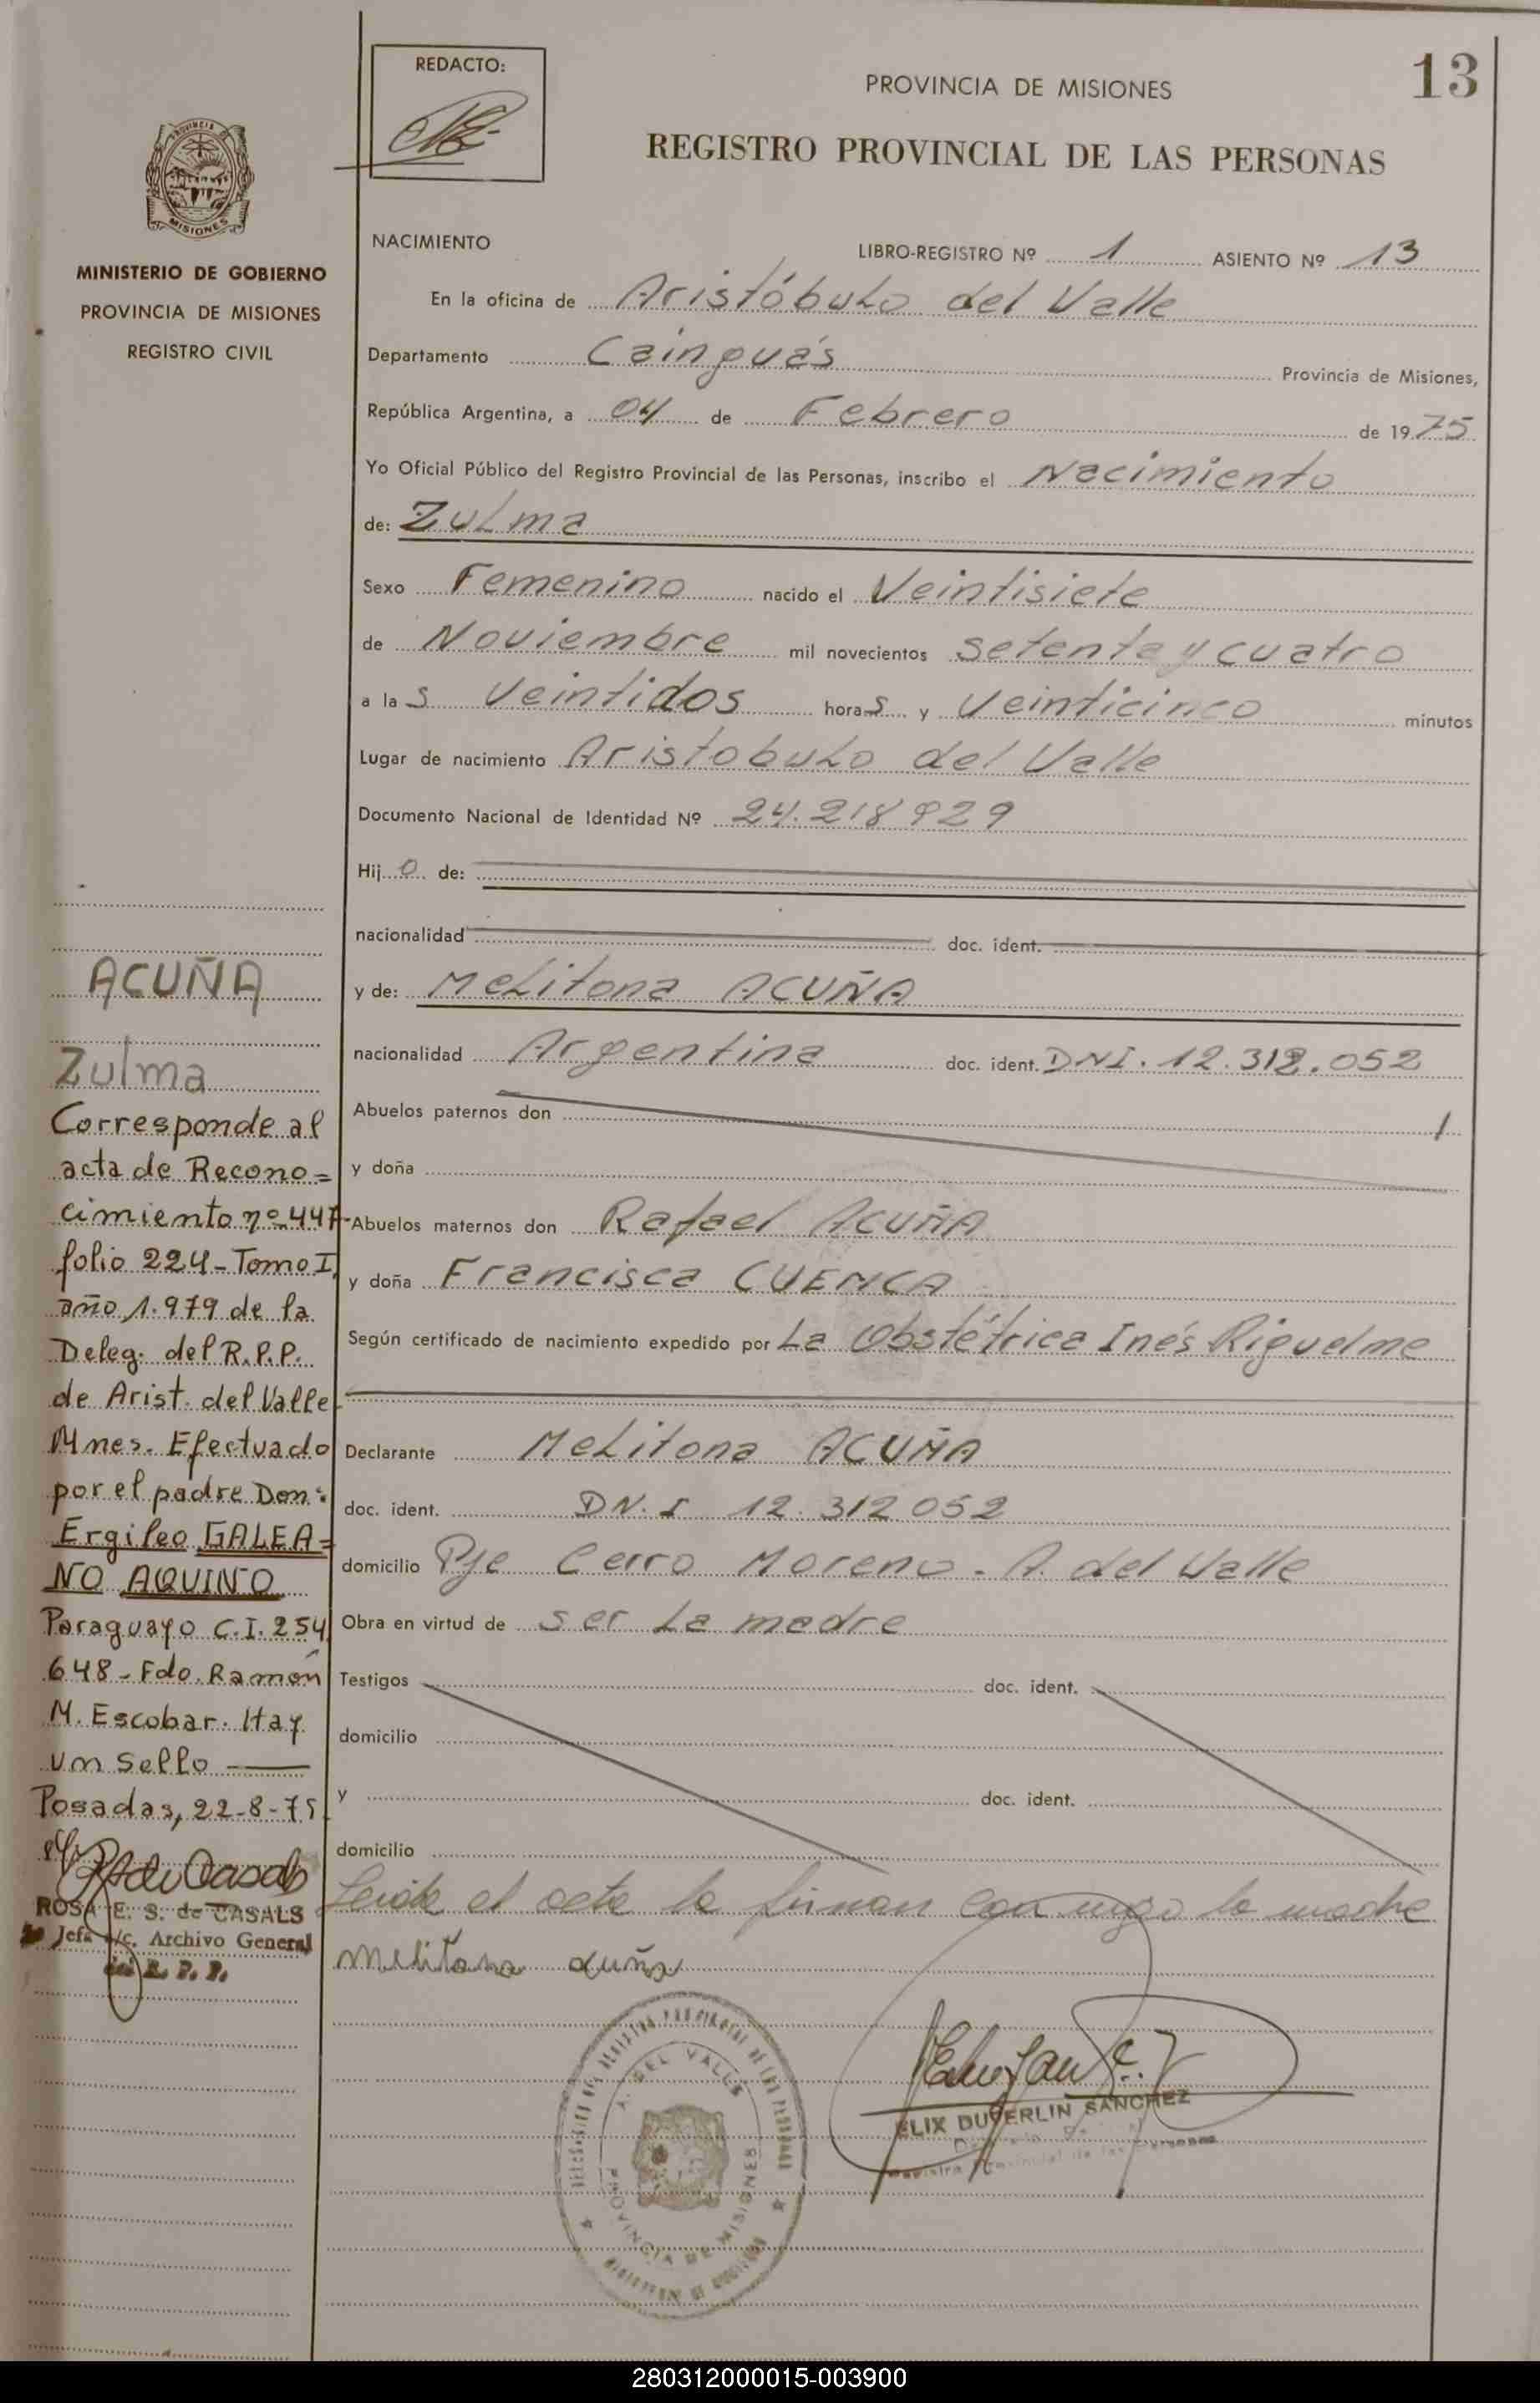 REDACTO:
PROVINCIA DE MISIONES
13
REGISTRO PROVINCIAL DE LAS PERSONAS
PROVINCIA DE
MISIONES
MINISTERIO DE GOBIERNO
PROVINCIA DE MISIONES
REGISTRO CIVIL
NACIMIENTO
LIBRO-REGISTRO Nº 1 ASIENTO Nº 13
En la oficina de Aristóbulo del Valle
Departamento Cainguás Provincia de Misiones,
República Argentina, a 04 de Febrero de 1975
Yo Oficial Público del Registro Provincial de las Personas, inscribo el Nacimiento
de: Zulma
Sexo Femenino nacido el Veintisiete
de Noviembre mil novecientos setenta y cuatro
a las veintidos horas y veinticinco minutos
Lugar de nacimiento Aristobulo del Valle
Documento Nacional de Identidad Nº 24.218929
Hij o de:
nacionalidad doc. ident.
y de: Melitona ACUÑA
nacionalidad Argentina doc. ident. DNI. 12.312.052
Abuelos paternos don
y doña
Abuelos maternos don Rafael ACUÑA
y doña Francisca CUENCA
Según certificado de nacimiento expedido por La Obstétrica Inés Riquelme
Declarante Melitona ACUÑA
doc. ident. DN.I 12.312.052
domicilio Pje Cerro Moreno - A. del Valle
Obra en virtud de ser La madre
Testigos doc. ident.
domicilio
y doc. ident.
domicilio
Leida el acta la firman conmigo la madre
Melitona acuña
ACUÑA
Zulma
Corresponde al
acta de Recono=
cimiento nº 447-
folio 224-Tomo I,
año 1.979 de la
Deleg. del R.P.P.
de Arist. del Valle
Mnes. Efectuado
por el padre Don:
Ergileo GALEA=
NO AQUINO
Paraguayo C.I. 254
648 - Fdo. Ramón
M. Escobar. Hay
un sello
Posadas, 22-8-75
ROSA E. S. de CASALS
Jefa a/c. Archivo General
del R. P. P.
A. DEL VALLE
PROVINCIA DE MISIONES
ELIX DUPERLIN SANCHEZ
Registro Provincial de las Personas
280312000015-003900